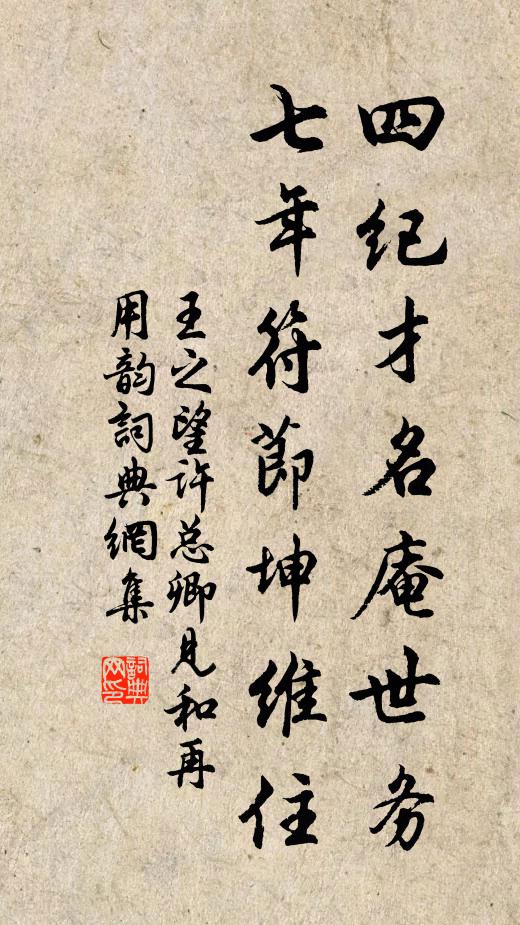 四纪才名庵世务
七年符節坤維住
王之望许总卿見和再
用韵詞典網集
詞典网印